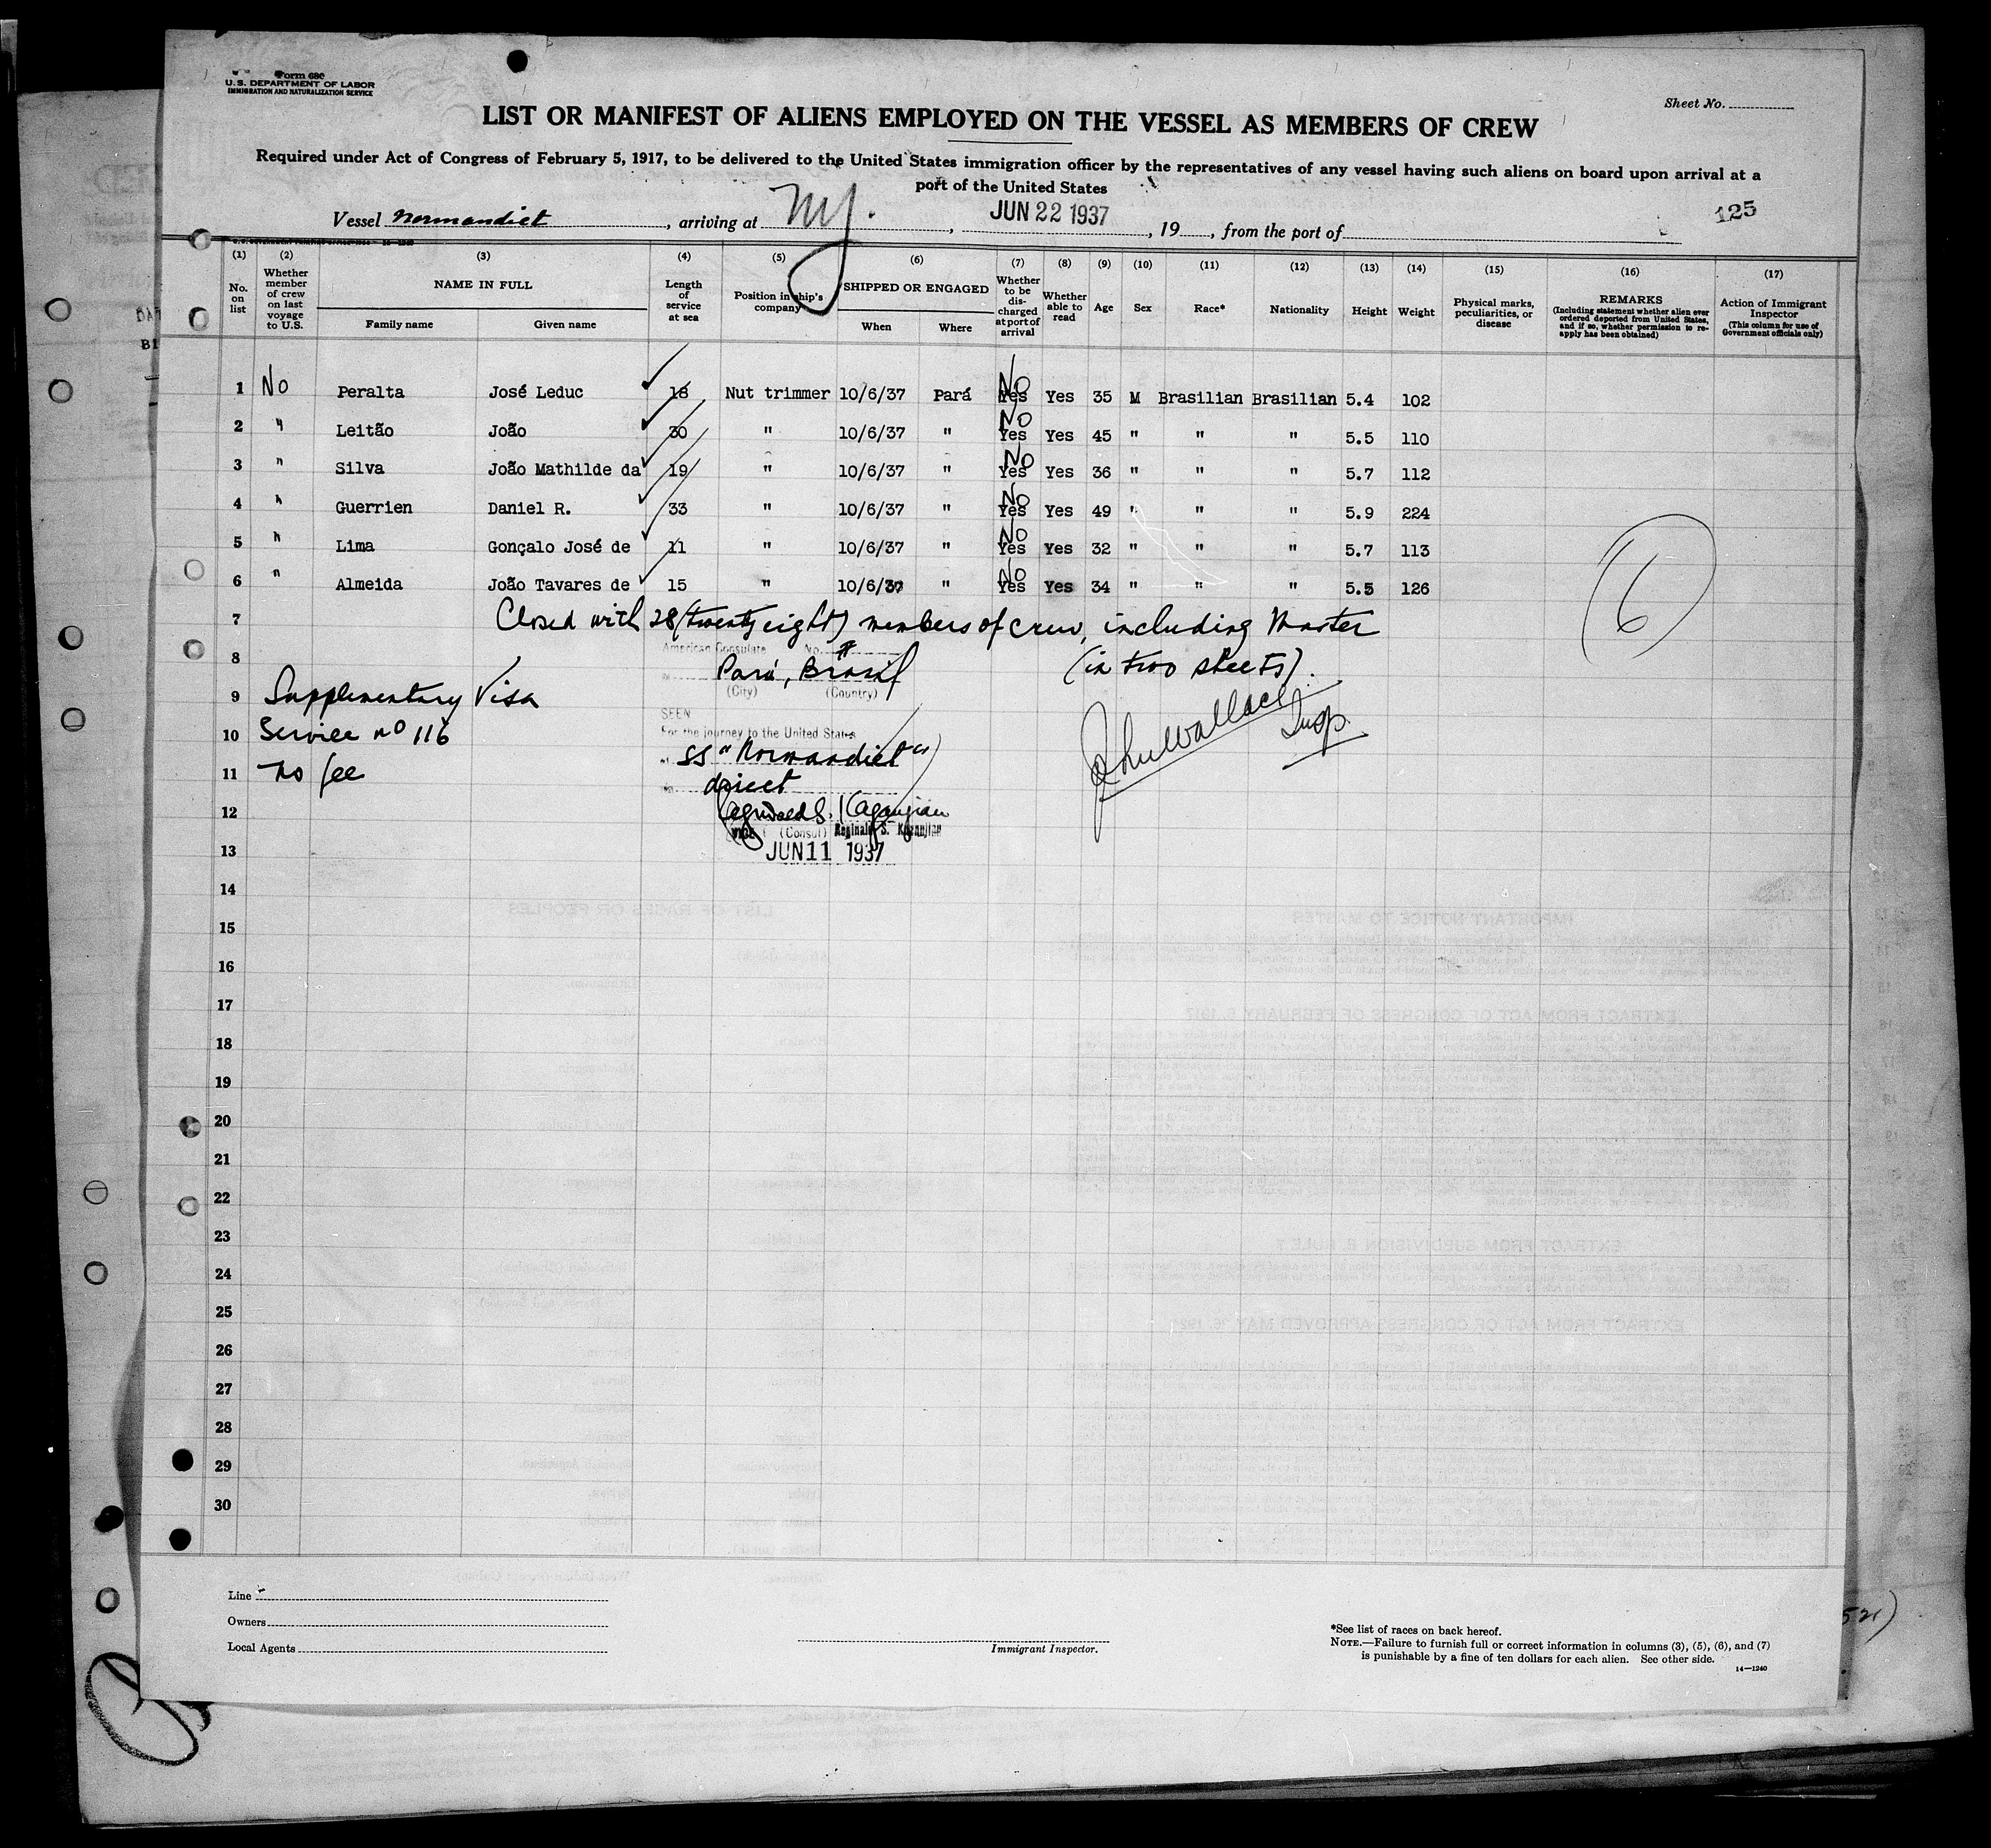 Form 680
U. S. DEPARTMENT OF LABOR
IMMIGRATION AND NATURALIZATION SERVICE
Sheet No.
LIST OR MANIFEST OF ALIENS EMPLOYED ON THE VESSEL AS MEMBERS OF CREW
Required under Act of Congress of February 5, 1917, to be delivered to the United States immigration officer by the representatives of any vessel having such aliens on board upon arrival at a
port of the United States
Vessel Normandiet, arriving at NY., JUN 22 1937, 19, from the port of
125
(1) (2) (3) (4) (5) (6) (7) (8) (9) (10) (11) (12) (13) (14) (15) (16) (17)
No. on list
Whether member of crew on last voyage to U.S.
NAME IN FULL
Family name
Given name
Length of service at sea
Position in ship's company
SHIPPED OR ENGAGED
When
Where
Whether to be discharged at port of arrival
Whether able to read
Age
Sex
Race*
Nationality
Height
Weight
Physical marks, peculiarities, or disease
REMARKS
(Including statement whether alien ever ordered deported from United States, and if so, whether permission to reapply has been obtained)
Action of Immigrant Inspector
(This column for use of Government officials only)
1 No Peralta José Leduc 18 Nut trimmer 10/6/37 Pará No Yes Yes 35 M Brasilian Brasilian 5.4 102
2 " Leitão João 30 " 10/6/37 " No Yes Yes 45 " " " 5.5 110
3 " Silva João Mathilde da 19 " 10/6/37 " No Yes Yes 36 " " " 5.7 112
4 " Guerrien Daniel R. 33 " 10/6/37 " No Yes Yes 49 " " " 5.9 224
5 " Lima Gonçalo José de 11 " 10/6/37 " No Yes Yes 32 " " " 5.7 113
6 " Almeida João Tavares de 15 " 10/6/37 " No Yes Yes 34 " " " 5.5 126
6
7 Closed with 28 (twenty eight) members of crew, including Master
(in two sheets).
8 American Consulate No.
Pará, Brasil
(City) (Country)
9 Supplementary Visa
SEEN
10 Service no 116
For the journey to the United States
SS "Normandiet"
11 no fee
direct
John Wallace
Insp.
12 Reginald S. Kazanjian
VICE (Consul) Reginald S. Kazanjian
13 JUN 11 1937
14
15
16
17
18
19
20
21
22
23
24
25
26
27
28
29
30
Line
Owners
Local Agents
Immigrant Inspector.
*See list of races on back hereof.
NOTE.—Failure to furnish full or correct information in columns (3), (5), (6), and (7)
is punishable by a fine of ten dollars for each alien. See other side.
14—1240